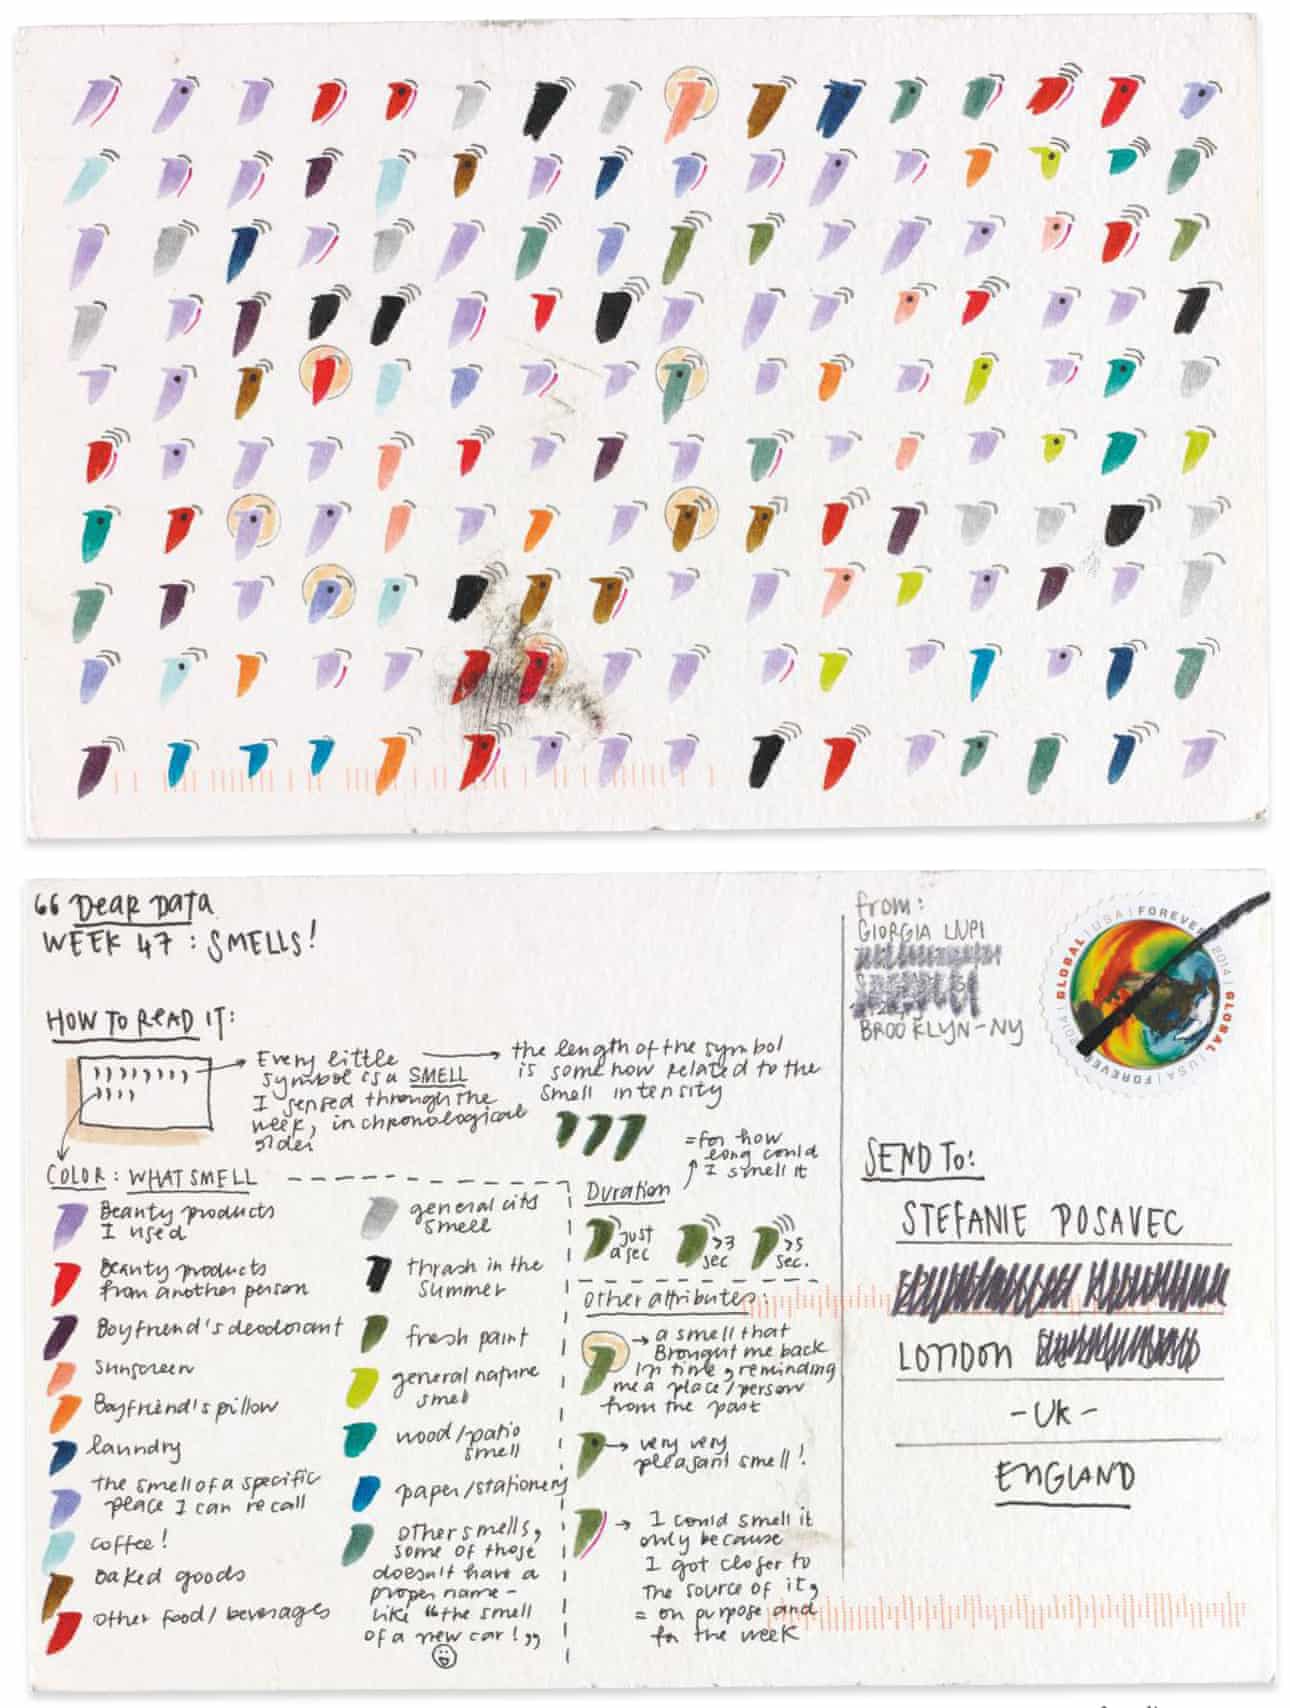 “ Dear Data
WEEK 47 : SMELLS!
HOW TO READ IT:
Every little
symbol is a SMELL
I sensed through the
week, in chronological
order
the length of the symbol
is somehow related to the
smell intensity
COLOR : WHAT SMELL
Beauty products
I used
Beauty products
from another person
Boyfriend's deodorant
sunscreen
Boyfriend's pillow
laundry
the smell of a specific
place I can recall
coffee!
baked goods
other food/beverages
general city
smell
thrash in the
summer
fresh paint
general nature
smell
wood/patio
smell
paper/stationery
other smells,
some of those
doesn't have a
proper name -
like "the smell
of a new car!"
Duration
= for how
long could
I smell it
just
a sec
>3
sec
>5
sec.
Other attributes:
a smell that
Brought me back
in time, reminding
me a place/person
from the past
very very
pleasant smell!
I could smell it
only because
I got closer to
the source of it,
= on purpose and
for the week
from:
GIORGIA LUPI
BROOKLYN-NY
GLOBAL | USA | FOREVER 2014 | GLOBAL | USA | FOREVER 2014
SEND TO:
STEFANIE POSAVEC
LONDON
- UK -
ENGLAND